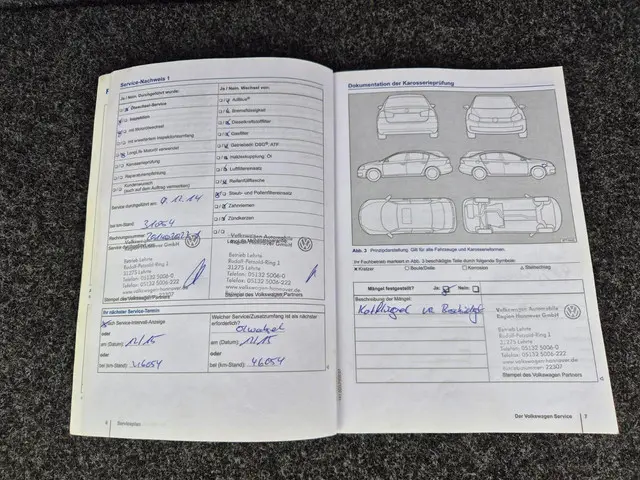 Service-Nachweis 1
Ja / Nein. Durchgeführt wurde:
Ölwechsel-Service
Inspektion
mit Motorölwechsel
mit erweitertem Inspektionsumfang
LongLife Motoröl verwendet
Karosserieprüfung
Reparaturempfehlung
Kundenwunsch
(auch auf dem Auftrag vermerken)
Service durchgeführt am: 9.12.14
bei km-Stand: 31054
Rechnungsnummer:
Volkswagen Automobile
Region Hannover GmbH
Betrieb Lehrte
Rudolf-Petzold-Ring 1
31275 Lehrte
Telefon: 05132 5006-0
Telefax: 05132 5006-222
Stempel des Volkswagen Partners
Ja / Nein. Wechsel von:
AdBlue®
Bremsflüssigkeit
Dieselkraftstofffilter
Gasfilter
Getriebeöl DSG®, ATF
Haldexkupplung, Öl
Luftfiltereinsatz
Reifenfüllflasche
Staub- und Pollenfiltereinsatz
Zahnriemen
Zündkerzen
Betrieb Lehrte
Rudolf-Petzold-Ring 1
31275 Lehrte
Telefon: 05132 5006-0
Telefax: 05132 5006-222
Stempel des Volkswagen Partners
Ihr nächster Service-Termin
Nach Service-Intervall-Anzeige
oder
am (Datum): 12/15
bei km-Stand: 46054
Welcher Service/Zusatzumfang ist als nächster
erforderlich? Ölwechsel
oder
am (Datum): 12/15
bei (km-Stand): 46054
6
Serviceplan
Dokumentation der Karosserieprüfung
Abb. 3 Prinzipdarstellung. Gilt für alle Fahrzeuge und Karosserieformen.
Ihr Fachbetrieb markiert in Abb. 3 beschädigte Teile durch folgende Symbole:
Kratzer
Beule/Delle
Korrosion
Steinschlag
Mängel festgestellt? Ja: Nein:
Beschreibung der Mängel:
Volkswagen Automobile
Region Hannover GmbH
Betrieb Lehrte
Rudolf-Petzold-Ring 1
31275 Lehrte
Telefon: 05132 5006-0
Telefax: 05132 5006-222
Stempel des Volkswagen Partners
Der Volkswagen Service
7